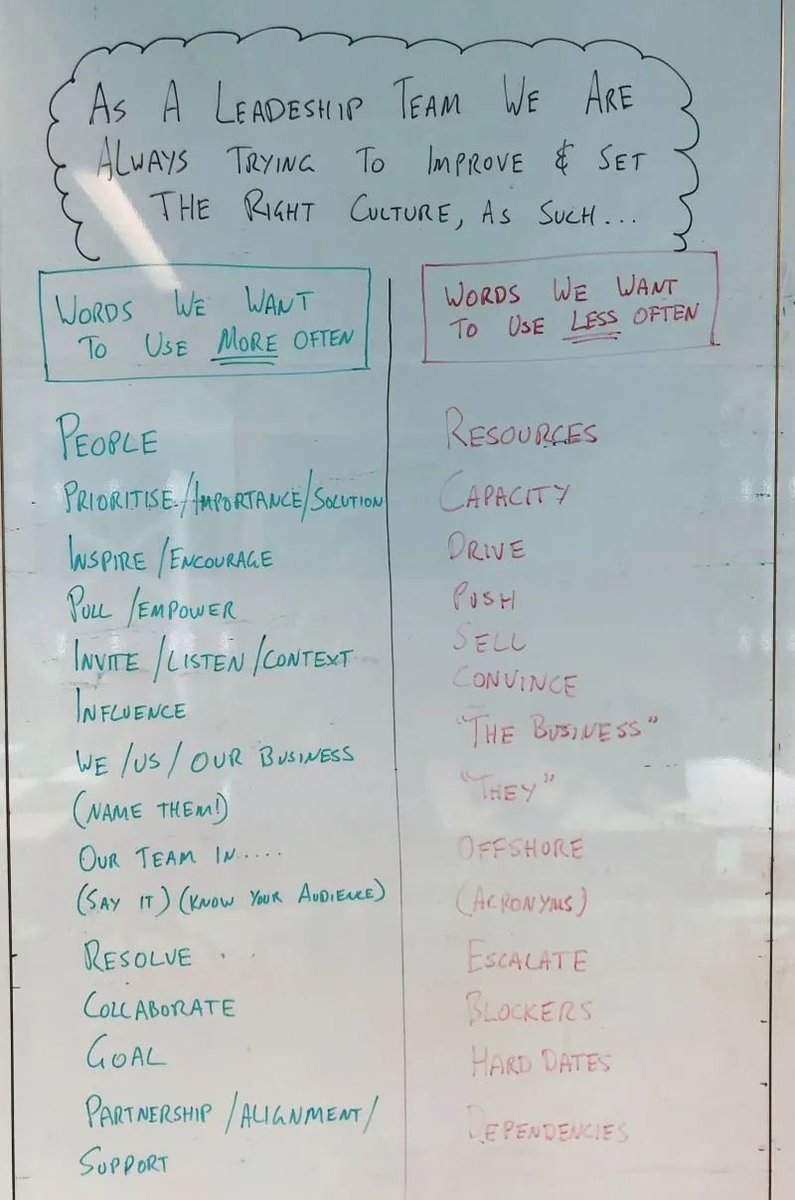 AS A LEADESHIP TEAM WE ARE
ALWAYS TRYING TO IMPROVE & SET
THE RIGHT CULTURE, AS SUCH...
WORDS WE WANT
TO USE MORE OFTEN
PEOPLE
PRIORITISE/IMPORTANCE/SOLUTION
INSPIRE/ENCOURAGE
PULL/EMPOWER
INVITE/LISTEN/CONTEXT
INFLUENCE
WE/US/OUR BUSINESS
(NAME THEM!)
OUR TEAM IN.....
(SAY IT) (KNOW YOUR AUDIENCE)
RESOLVE
COLLABORATE
GOAL
PARTNERSHIP/ALIGNMENT/
SUPPORT
WORDS WE WANT
TO USE LESS OFTEN
RESOURCES
CAPACITY
DRIVE
PUSH
SELL
CONVINCE
"THE BUSINESS"
"THEY"
OFFSHORE
(ACRONYMS)
ESCALATE
BLOCKERS
HARD DATES
DEPENDENCIES